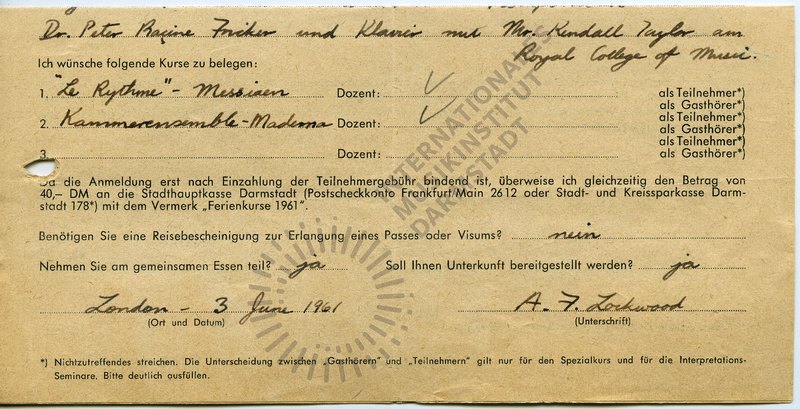 Dr. Peter Racine Fricker und Klavier mit Mr. Kendall Taylor am
Royal College of Music.
Ich wünsche folgende Kurse zu belegen:
1. "Le Rythme" - Messiaen Dozent: als Teilnehmer*)
als Gasthörer*)
2. Kammerensemble - Maderna Dozent: als Teilnehmer*)
als Gasthörer*)
3. Dozent: als Teilnehmer*)
als Gasthörer*)
Da die Anmeldung erst nach Einzahlung der Teilnehmergebühr bindend ist, überweise ich gleichzeitig den Betrag von
40,– DM an die Stadthauptkasse Darmstadt (Postscheckkonto Frankfurt/Main 2612 oder Stadt- und Kreissparkasse Darm-
stadt 178*) mit dem Vermerk „Ferienkurse 1961".
Benötigen Sie eine Reisebescheinigung zur Erlangung eines Passes oder Visums? nein
Nehmen Sie am gemeinsamen Essen teil? ja Soll Ihnen Unterkunft bereitgestellt werden? ja
London - 3 June 1961 A. F. Lockwood
(Ort und Datum) (Unterschrift)
*) Nichtzutreffendes streichen. Die Unterscheidung zwischen „Gasthörern" und „Teilnehmern" gilt nur für den Spezialkurs und für die Interpretations-
Seminare. Bitte deutlich ausfüllen.
INTERNATIONALES
MUSIKINSTITUT
DARMSTADT